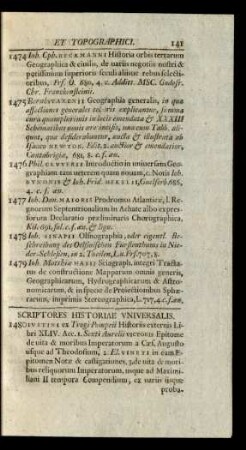 ET TOPOGRAPHICI. 141
1474 Ioh. Cph. BECKMANNI Historia orbis terrarum
Geographica & ciuilis, de uariis negotiis nostri &
potissimum superioris seculi aliisue rebus selectio-
ribus, Frf. O. 4. c. Addit. MSC. Godofr.
Chr. Franckensteinii.
1475 Geographia generalis, in qua
affectiones generales telluris explicantur, summa
cura quam plurimis in locis emendata & XXXIII
Schematibus nouis ære incisis, una cum Tabb. ali-
quot, quæ desiderabantur, aucta & illustrata ab
Isaaco NEWTON. Edit. 2. auctior & emendatior,
Cantabrigiæ, 681. 8. c. f. æn.
1476 Phil. CLVVERII Introductio in universam Geo-
graphiam tam ueterem quam nouam, c. Notis Ioh.
BVNONIS & Ioh. Frid. HEKELII,
4. c. f. æn.
1477 Ioh. Dan. MAIORIS Prodromus Atlanticæ, l. Re-
gionum Septentrionalium in Actube albo expres-
sorum Declaratio præliminaris Chorographica,
Kil. fol. c. f. æn. & lign.
1478 Ioh. SINAPII Olsnographia, oder eigentl. Be-
schreibung des Oelßnischen Fürstenthums in Nie-
der-Schlesien, in 2. Theilen, 8.
1479 Ioh. Matthiæ HASII Sciagraph. integri Tracta-
tus de constructione Mapparum omnis generis,
Geographicarum, Hydrographicarum & Astro-
nomicarum, & in specie de Proiectionibus Sphæ-
rarum, imprimis Stereographica, L. 717. 4. c. f. æn.
SCRIPTORES HISTORIAE VNIVERSALIS.
1480 IVSTINI ex Trogi Pompeii Historiis externis Li-
bri XLIV. Acc. 1. Sexti Aurelii VICTORIS Epitome
de uita & moribus Imperatorum a Cæs. Augusto
usque ad Theodosium, 2. El. VINETI in eam E-
pitomen Notæ & castigationes, 3. de uita & mori-
bus reliquorum Imperatorum, usque ad Maximi-
liani II tempora Compendium, ex variis iisque
proba-